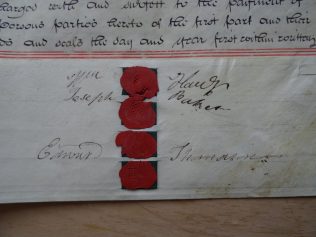 charged with and subject to the payment of
Persons parties hereto of the first part and their
ds and seals the day and year first within written
Wm Hardy
Joseph
Edward Thomason